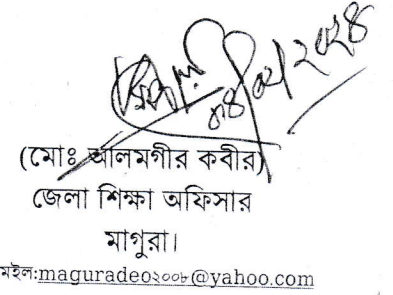 ০৪/০২/২০২৪
(মোঃ আলমগীর কবীর)
জেলা শিক্ষা অফিসার
মাগুরা।
মইল:maguradeo২০০৮@yahoo.com